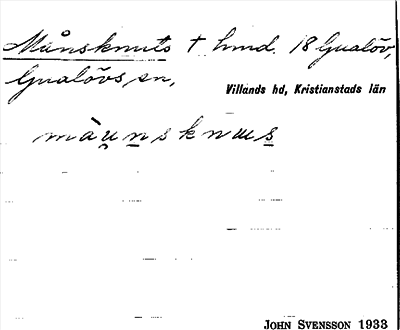 Månsknuts † hmd. 18 Gualöv,
Gualövs sn,
Villands hd, Kristianstads län
màu̯n̲sknus̲
JOHN SVENSSON 1933